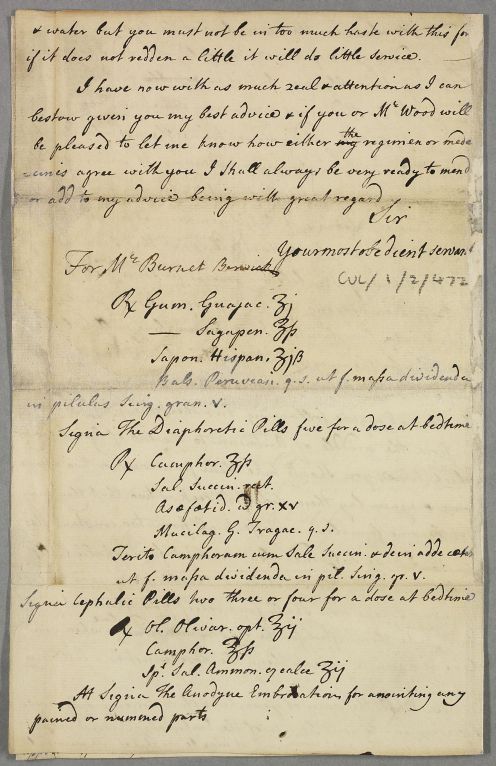 & water but you must not be in too much haste with this for
if it does not redden a little it will do little service.
I have now with as much zeal & attention as I can
bestow given you my best advice & if you or Mr Wood will
be pleased to let me know how either my the regimen or mede
=cines agree with you I shall always be very ready to mend
or add to my advice being with great regard
Sir
Your most obedient servant
For Mr Burnet Berwick
CUL/1/2/472
℞ Gum. Guajac. ʒj
— Sagapen. ʒß
Sapon. Hispan. ʒjß
Bals. Peruvean. q.s. ut f. massa dividenda
in pilulas sing. gran. v.
Signa The Diaphoretic Pills five for a dose at bedtime
℞ Camphor. ʒß
Sal. Succin. rect.
Asæfœtid. a gr. xv
Mucilag. G. Tragac. q.s.
Terito Camphoram cum Sale Succini & dein adde cætera
ut f. massa dividenda in pil. sing. gr. v.
Signa Cephalic Pills two three or four for a dose at bedtime
℞ Ol. Olivar. opt. ʒij
Camphor. ʒß
Spt Sal. Ammon. c calce ʒij
M Signa The Anodyne Embrocation for anointing any
pained or nummed parts